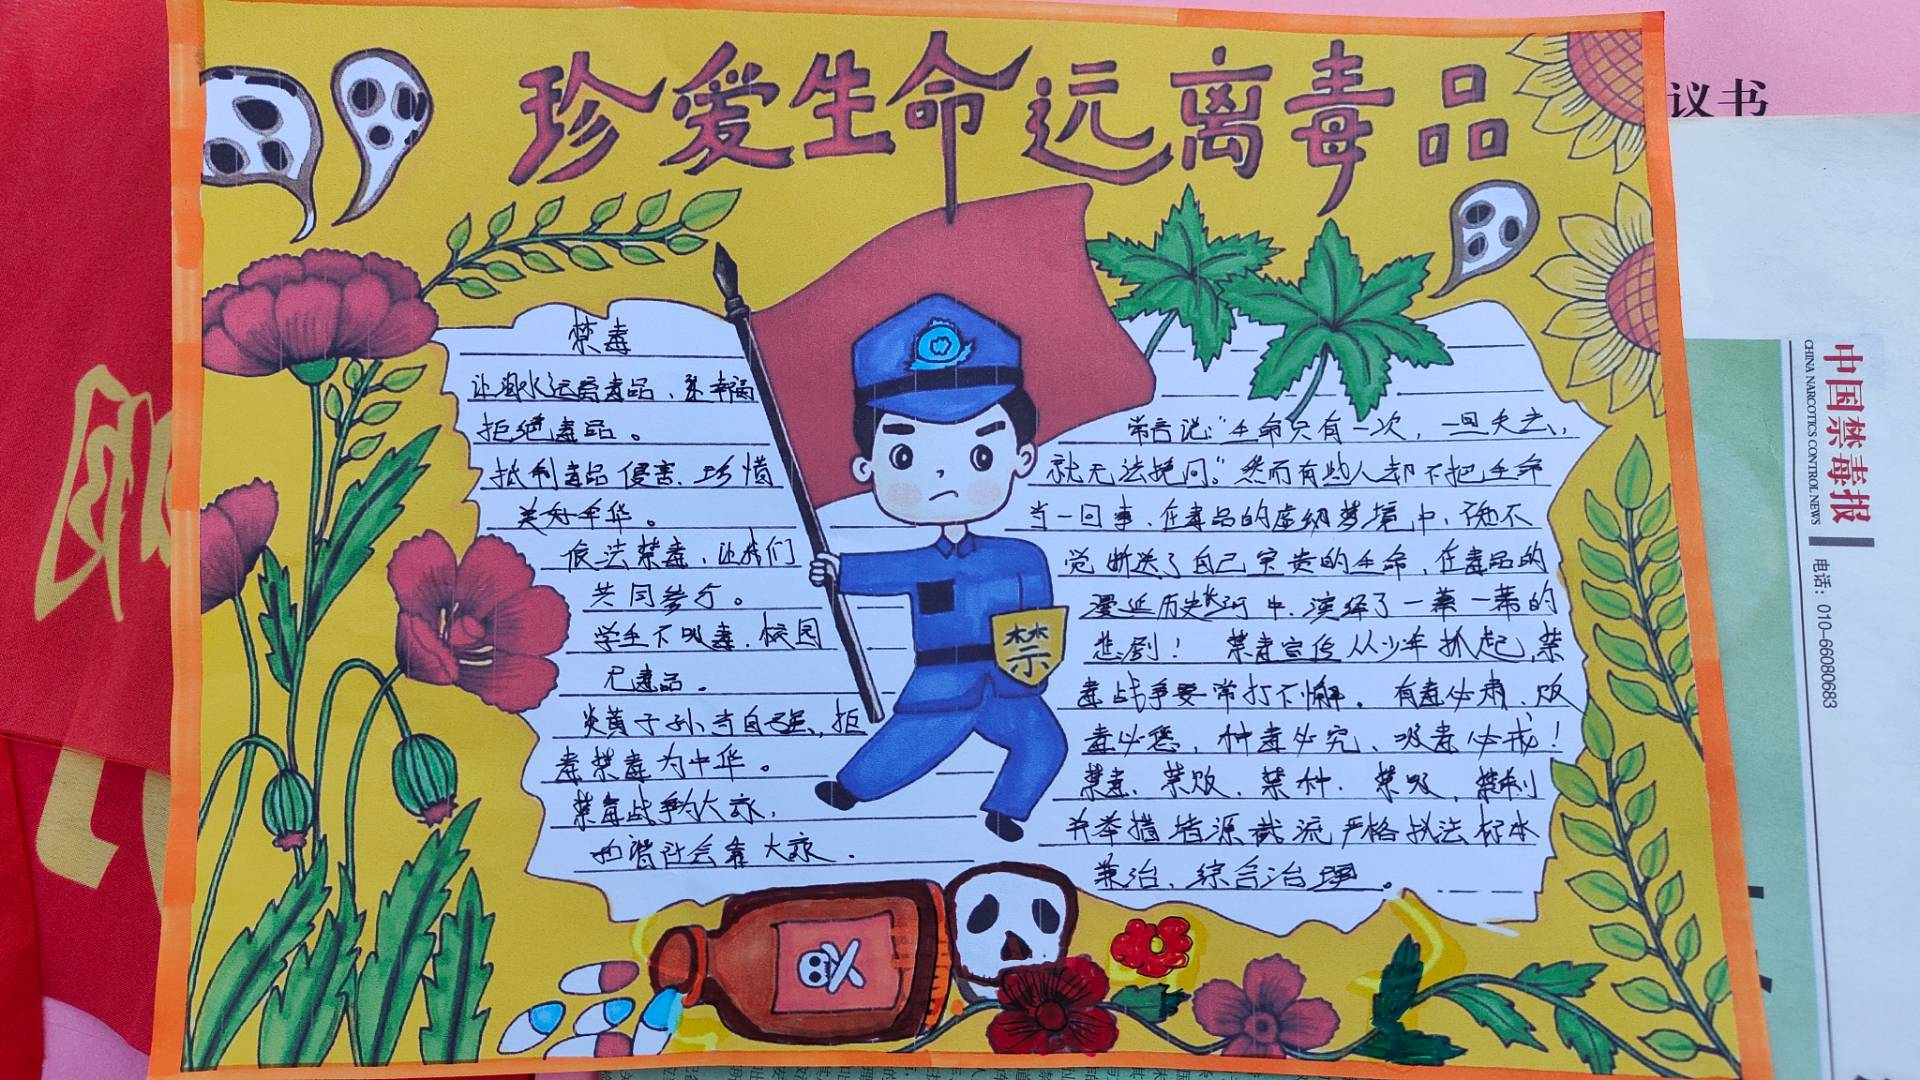 珍爱生命远离毒品
禁毒
让潮水远离毒品、让幸福
拒绝毒品。
抵制毒品侵害、珍惜
美好年华。
依法禁毒、让我们
共同参与。
学生不吸毒、校园
无毒品。
炎黄子孙当自强,拒
毒禁毒为中华。
禁毒战争为大家,
和谐社会靠大家.
常言说:"生命只有一次,一旦失去,
就无法挽回。"然而有些人却不把生命
当一回事、在毒品的虚幻梦境中、不
觉断送了自己宝贵的生命、在毒品的
漫延历史长河中、演绎了一幕一幕的
悲剧! 禁毒宣传从少年抓起,禁
毒战争要常打不懈。有毒必肃、贩
毒必惩、种毒必究、吸毒必戒!
禁毒、禁贩、禁种、禁吸、禁制
并举措堵源截流严格执法标本
兼治、综合治理。
禁
议书
中国禁毒报
CHINA NARCOTICS CONTROL NEWS
电话：010-66080683